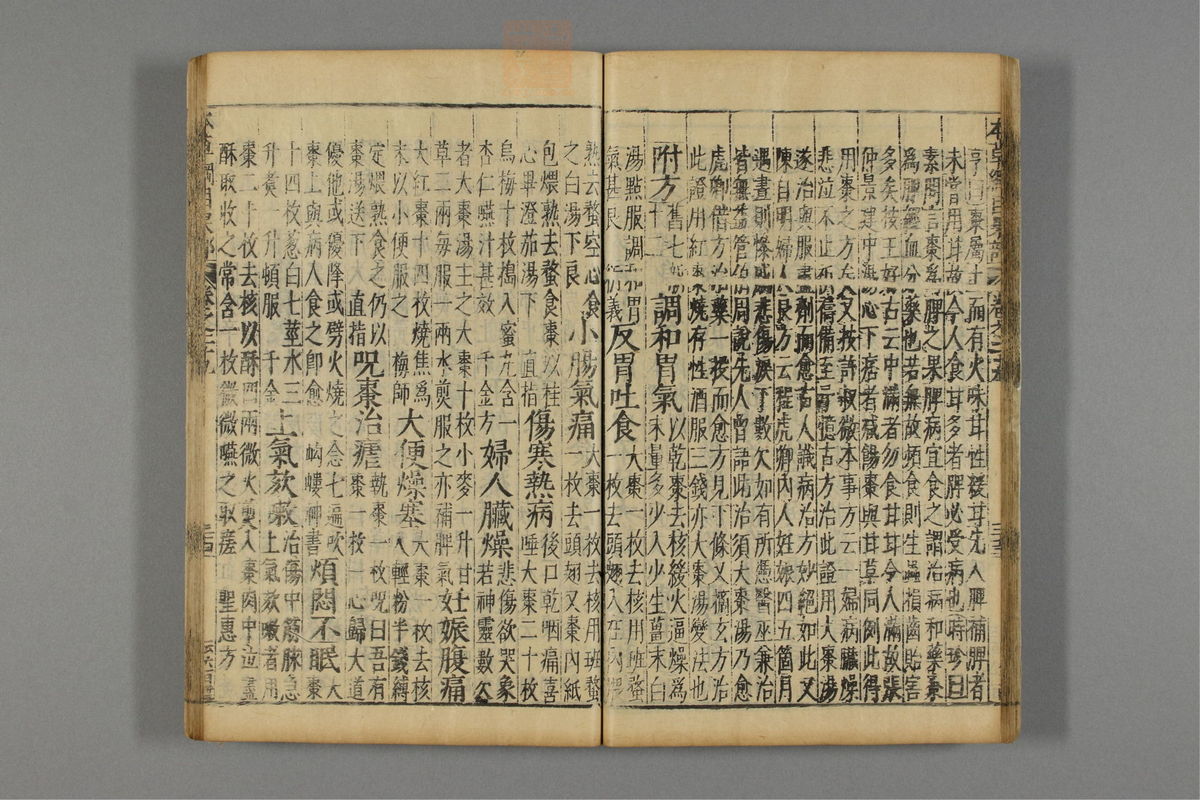 亨曰棗屬土而有火味甘性緩甘先入脾補脾者
未嘗用甘故今人食甘多者脾必受病也時珍曰
素問言棗爲脾之果脾病宜食之謂治病和藥棗
爲脾經血分藥也若無故頻食則生蟲損齒貽害
多矣按王好古云中滿者勿食甘甘令人滿故張
仲景建中湯心下痞者減餳棗與甘草同例此得
用棗之方矣又按許叔微本事方云一婦病臟燥
悲泣不止祈禱備至予憶古方治此證用大棗湯
遂治與服盡劑而愈古人識病治方妙絕如此又
陳自明婦人良方云程虎卿內人妊娠四五箇月
遇晝則慘慽悲傷淚下數欠如有所憑醫巫兼治
皆無益管伯周說先人曾語此治須大棗湯乃愈
虎卿借方治藥一投而愈方見下條又摘玄方治
此證用紅棗燒存性酒服三錢亦大棗湯變法也
附方 舊七新十二 調和胃氣以乾棗去核緩火逼燥爲
末量多少入少生薑末白
湯點服調和胃氣甚良 衍義 反胃吐食大棗一枚去核用班蝥
一枚去頭翅入在內煨
熟去蝥空心食之白湯下良 小腸氣痛大棗一枚去核用班蝥
一枚去頭翅又棗內紙
包煨熟去蝥食棗以桂心畢澄茄湯下 直指 傷寒熱病後口乾咽痛喜
唾大棗二十枚
烏梅十枚搗入蜜丸含一杏仁嚥汁甚效 千金方 婦人臟燥悲傷欲哭象
若神靈數欠
者大棗湯主之大棗十枚小麥一升甘
草二兩每服一兩水煎服之亦補脾氣 妊娠腹痛
大紅棗十四枚燒焦爲末以小便服之 梅師 大便燥塞大棗一枚去核
入輕粉半錢縛
定煨熟食之仍以棗湯送下 直指 咒棗治瘧執棗一枚咒曰吾有
棗一枚一心歸大道
優他或優降或劈火燒之念七遍吹
棗上與病人食之即愈 岣嶁神書 煩悶不眠大
棗
十四枚葱白七莖水三升煮一升頓服 千金 上氣欬嗽治傷中筋脉急
上氣欬嗽者用
棗二十枚去核以酥四兩微火煎入棗肉中泣盡
酥取收之常含一枚微微嚥之取瘥 聖惠方
本草綱目果部
卷之二十九